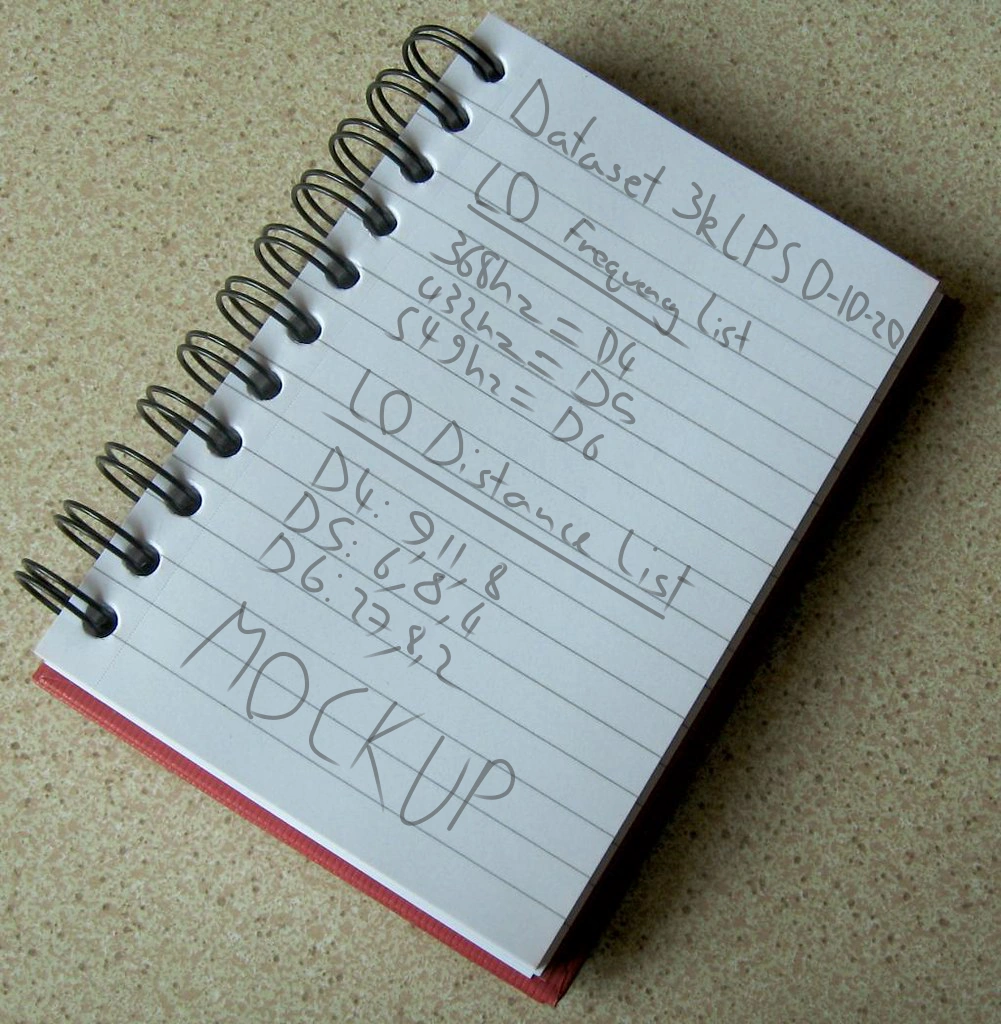 Dataset 3kLPS D-10-20
LO Frequency List
368hz = D4
432hz = D5
549hz = D6
LO Distance List
D4: 9, 11, 8
D5: 6, 8, 4
D6: 27, 8, 2
MOCKUP